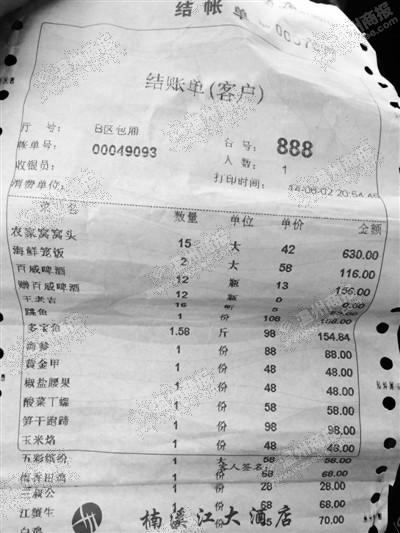 结帐单
结账单(客户)
厅 号: B区包厢 台号: 888
账单号: 00049093 人数: 1
收银员: 打印时间: 14-08-02 20:54
消费单位:
菜 名 数量 单位 单价 金额
农家窝窝头 15 大 42 630.00
海鲜笼饭 2 大 58 116.00
百威啤酒 12 瓶 13 156.00
赠百威啤酒 12 瓶 0 0.00
王老吉 16 听 5
跳鱼 1 份 108
多宝鱼 1.58 斤 98 154.84
海参 1 份 88 88.00
黄金甲 1 份 48 48.00
椒盐腰果 1 份 48 48.00
酸菜丁螺 1 份 58 58.00
笋干跑蹄 1 份 98 98.00
玉米烙 1 份 48 48.00
五彩缤纷 1 大 58 58.00
客人签名:
田鸡 1 份 68 68.00
三叔公 1 份 28 28.00
江蟹生 1 份 68 68.00
白鸡 1 份 70.00
楠溪江大酒店
温州商报